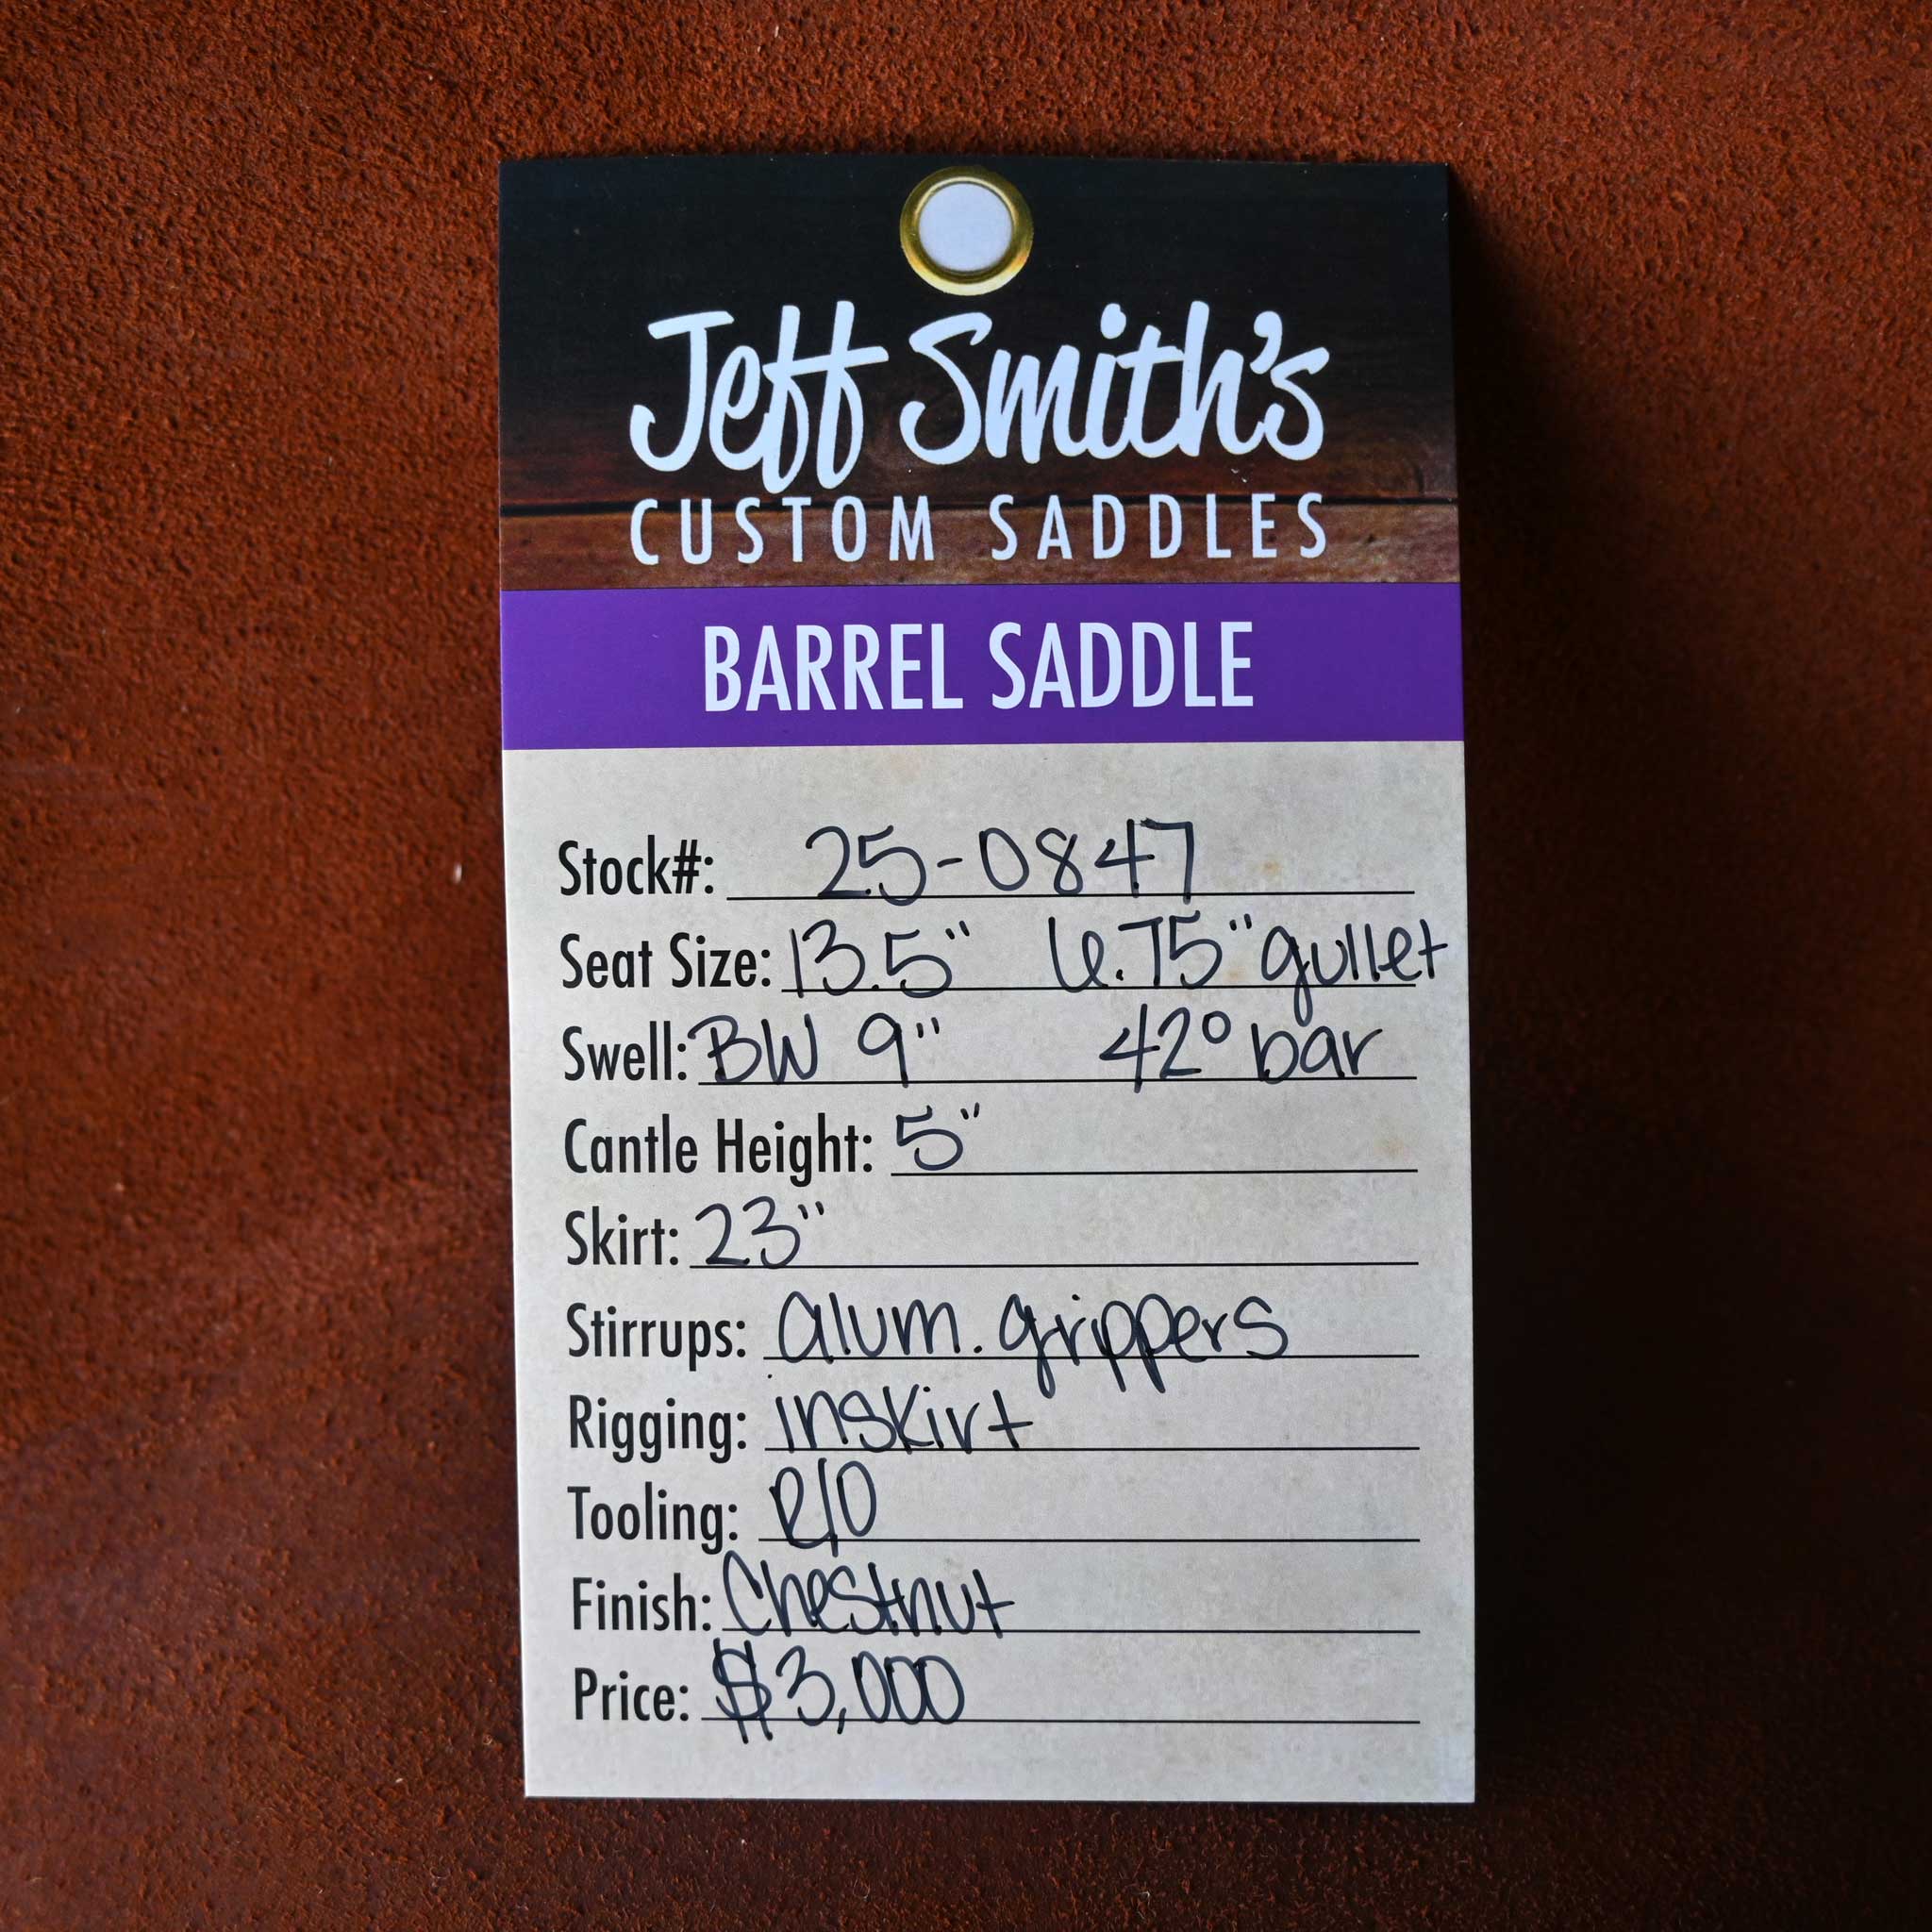 Jeff Smith's
CUSTOM SADDLES
BARREL SADDLE
Stock#: 25-0847
Seat Size: 13.5" 6.75" gullet
Swell: BW 9" 42° bar
Cantle Height: 5"
Skirt: 23"
Stirrups: alum. grippers
Rigging: inskirt
Tooling: R/O
Finish: Chestnut
Price: $3,000